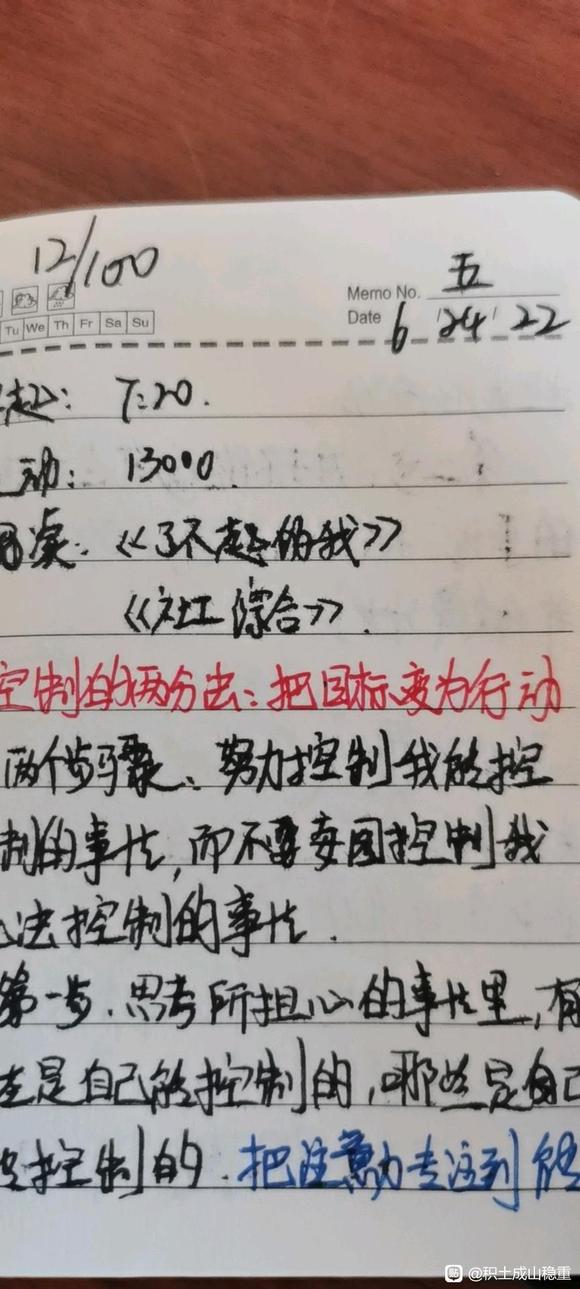 12/100
Memo No. 五
Tu We Th Fr Sa Su
Date 6 24 22
起: 7:20.
动: 13000
阅读: 《了不起的我》
《社工综合》.
控制的两分法: 把目标变为行动
两个步骤、努力控制我能控
制的事情, 而不要妄图控制我
无法控制的事情.
第一步. 思考所担心的事情里, 有
些是自己能控制的, 哪些是自己
控制的. 把注意力专注到能
贴 @积土成山稳重